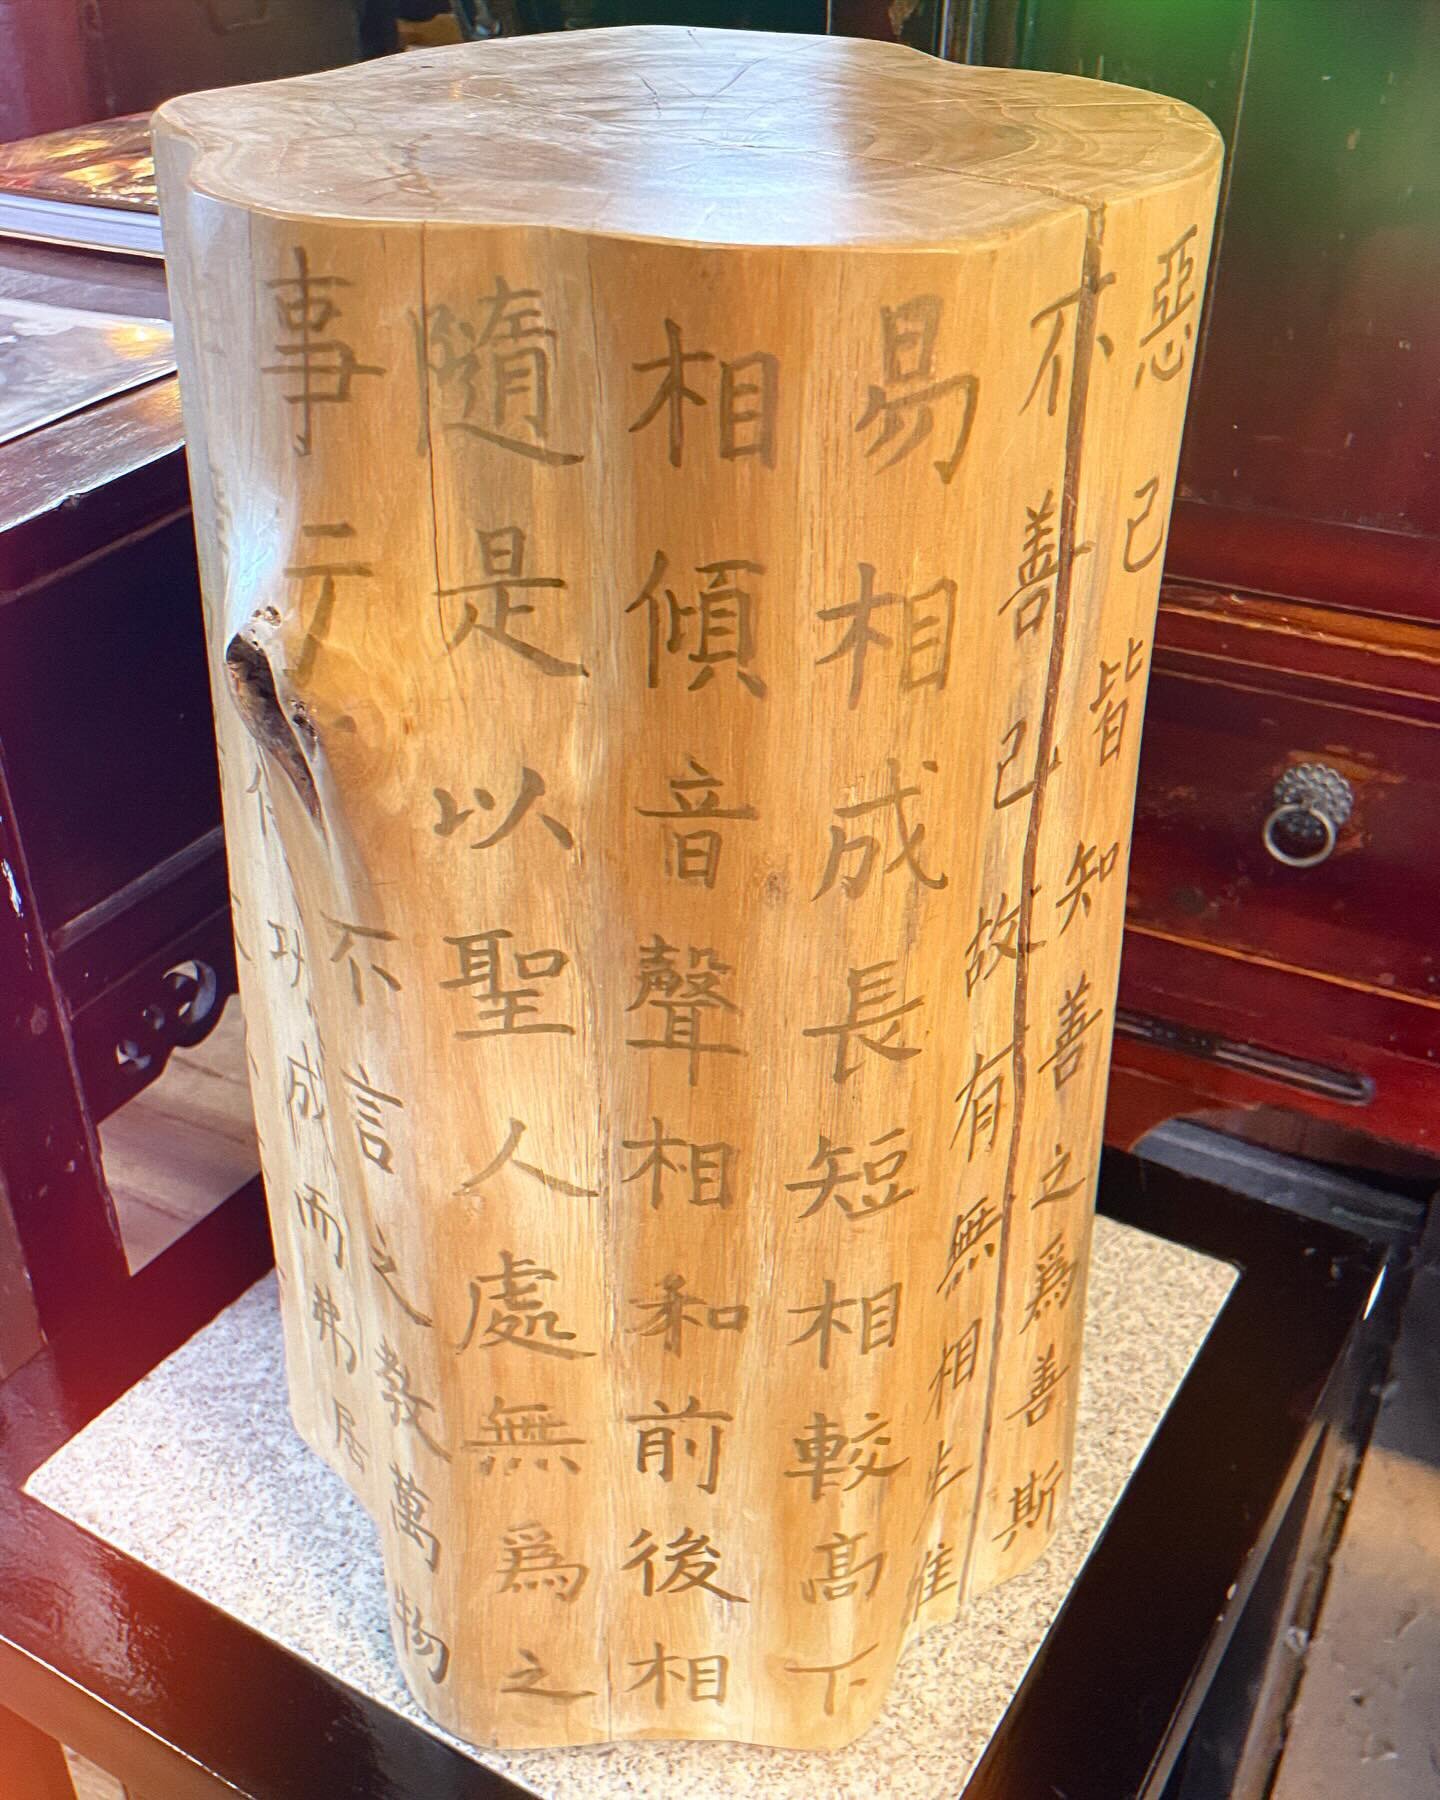 惡己皆知善之爲善斯
不善己故有無相生惟
易相成長短相較高下
相傾音聲相和前後相
隨是以聖人處無爲之
事行不言之教萬物
功成而弗居